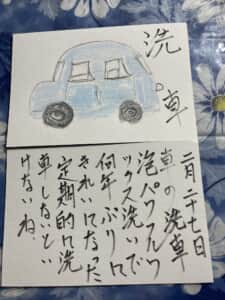 洗車
二月二十七日
車の洗車
泡パワフルワ
ックス洗いで
何年ぶりに
きれいになった
定期的に洗
車しないとい
けないね。